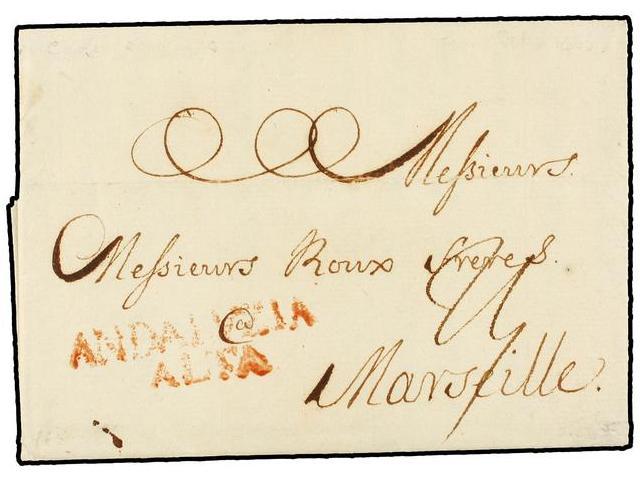 Messieurs.
Messieurs Roux freres.
@
ANDALUZIA
ALTA
Marseille.